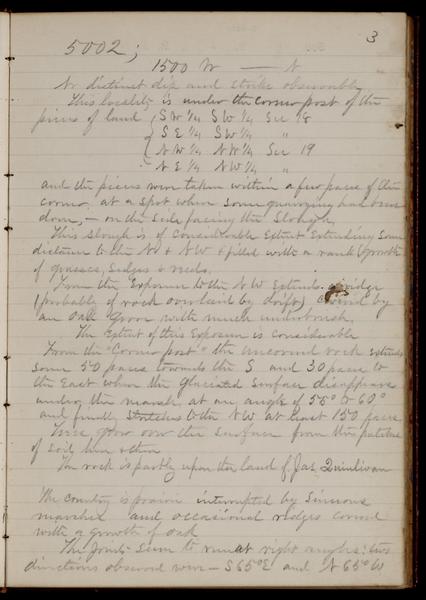 3
5002;
1500 W — N
No distinct dip and strike observable
This locality is under the corner post of the
pieces of land { SW ¼ SW ¼ Sec 18
SE ¼ SW ¼ "
NW ¼ NW ¼ Sec 19
NE ¼ NW ¼ "
and the pieces were taken within a few paces of the
corner, at a spot where some quarrying had been
done, — on the side facing the Slough.
This slough is of considerable extent extending some
distance to the N & NW & filled with a rank growth
of grasses, sedges & reeds.
From the Exposure to the NW extends a ridge
(probably of rock overlaid by drift) covered by
an oak grove with much underbrush.
The Extent of this Exposure is considerable
From the "Corner post" the uncovered rock extends
some 50 paces towards the S and 30 paces to
the East where the glaciated surface disappears
under the marsh at an angle of 55° to 60°
and finally stretches to the NW at least 150 paces
Trees grow over the surface from the patches
of soil here & there
The rock is partly upon the land of Jas. Quinlivan
The country is prairie interrupted by Sinuous
marshes and occasional ridges covered
with a growth of oak
The Joints seem to run at right angles: two
directions observed were — S 65° E and N 65° W